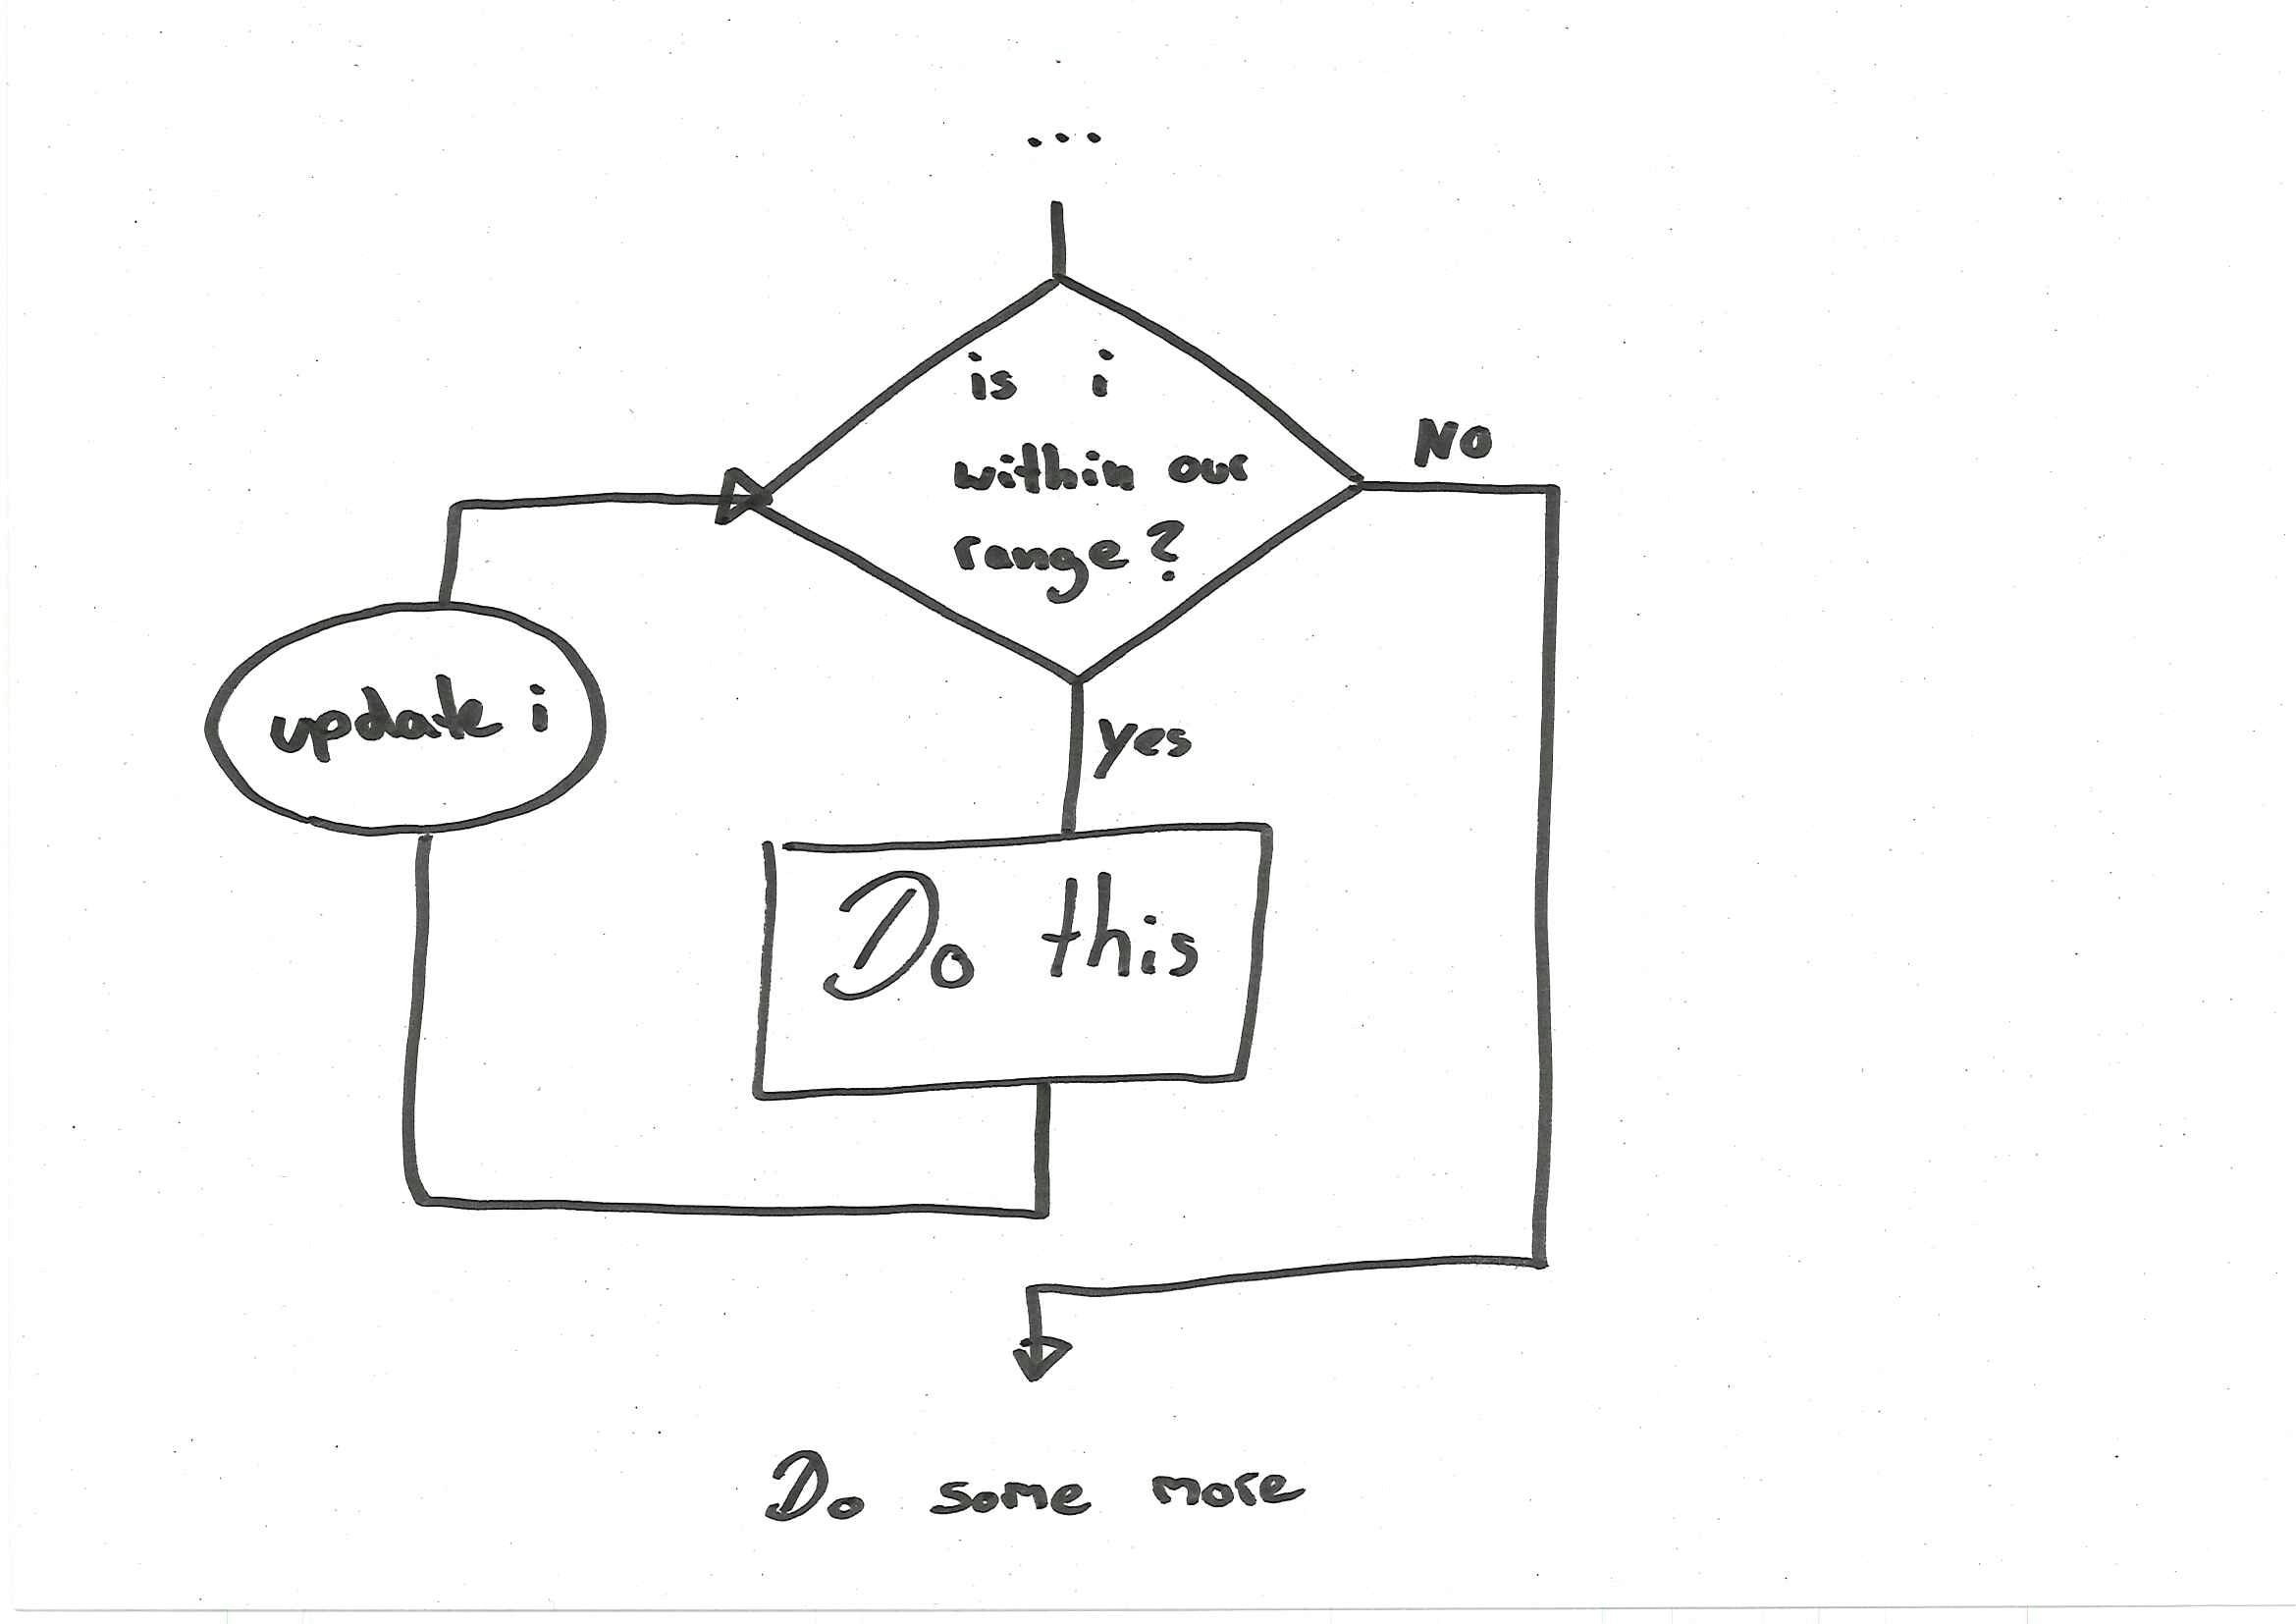 ...
is i
within our
range?
No
yes
update i
Do this
Do some more